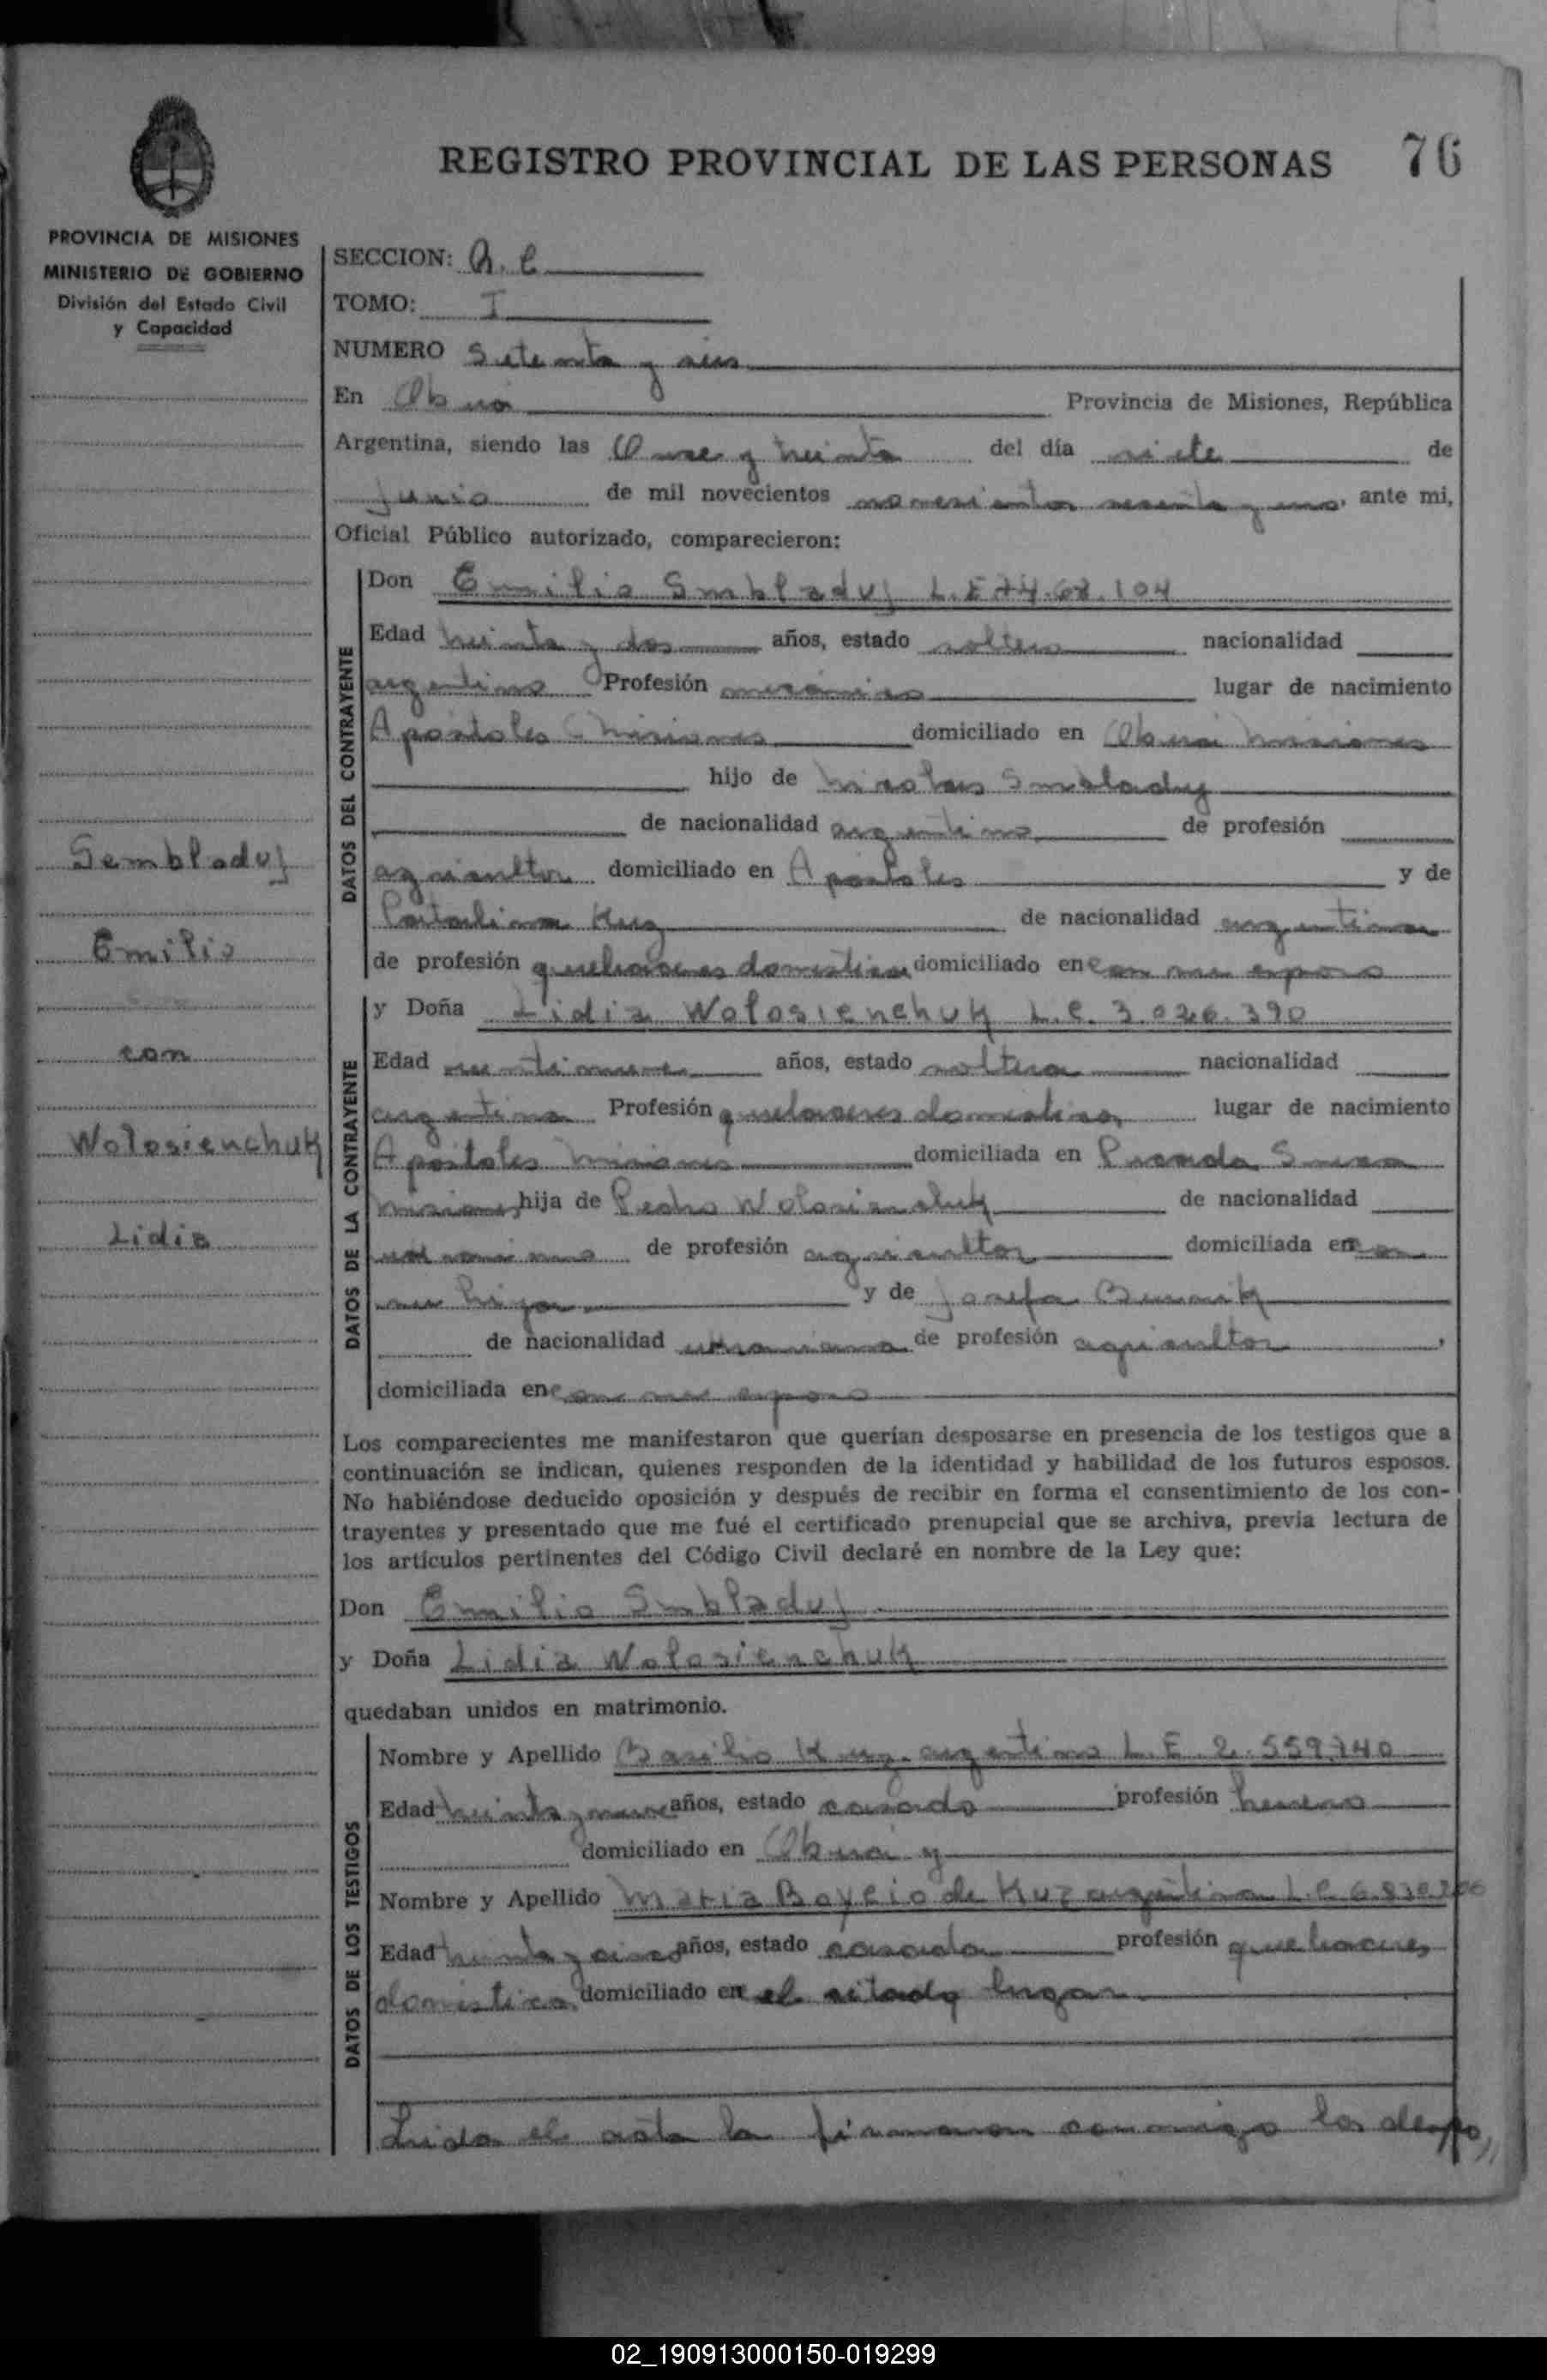 REGISTRO PROVINCIAL DE LAS PERSONAS 76
PROVINCIA DE MISIONES
MINISTERIO DE GOBIERNO
División del Estado Civil
y Capacidad
Sembladuj
Emilio
con
Wolosienchuk
Lidia
SECCION:
TOMO: I
NUMERO Setenta y seis
En Oberá Provincia de Misiones, República
Argentina, siendo las Once y treinta del día siete de
junio de mil novecientos novecientos sesenta y uno, ante mi,
Oficial Público autorizado, comparecieron:
DATOS DEL CONTRAYENTE
Don Emilio Smbladuj L.E
Edad treinta y dos años, estado soltero nacionalidad
argentino Profesión mecánico lugar de nacimiento
Apostoles Misiones domiciliado en Oberá Misiones
hijo de Nicolas Smbladuj
de nacionalidad argentino de profesión
agricultor domiciliado en Apostoles y de
Catalina Kuz de nacionalidad argentina
de profesión quehaceres domesticos domiciliado en con su esposo
DATOS DE LA CONTRAYENTE
y Doña Lidia Wolosienchuk L.C. 3.026.390
Edad veintinueve años, estado soltera nacionalidad
argentina Profesión quehaceres domesticos lugar de nacimiento
Apostoles Misiones domiciliada en Picada
Misiones hija de Pedro Wolosienchuk de nacionalidad
ucraniano de profesión agricultor domiciliada en con
su hija y de Josefa
de nacionalidad ucraniana de profesión agricultor,
domiciliada en con su esposo
Los comparecientes me manifestaron que querían desposarse en presencia de los testigos que a
continuación se indican, quienes responden de la identidad y habilidad de los futuros esposos.
No habiéndose deducido oposición y después de recibir en forma el consentimiento de los con-
trayentes y presentado que me fué el certificado prenupcial que se archiva, previa lectura de
los artículos pertinentes del Código Civil declaré en nombre de la Ley que:
Don Emilio Smbladuj
y Doña Lidia Wolosienchuk
quedaban unidos en matrimonio.
DATOS DE LOS TESTIGOS
Nombre y Apellido Basilio Kuz. argentino L.E. 2.559.740
Edad treinta y nueve años, estado casado profesión herrero
domiciliado en Oberá y
Nombre y Apellido Maria Boyeio de Kuz argentina L.C.
Edad treinta y cinco años, estado casada profesión quehaceres
domesticos domiciliado en el citado lugar
Leida el acta la firmaron conmigo los
02_190913000150-019299